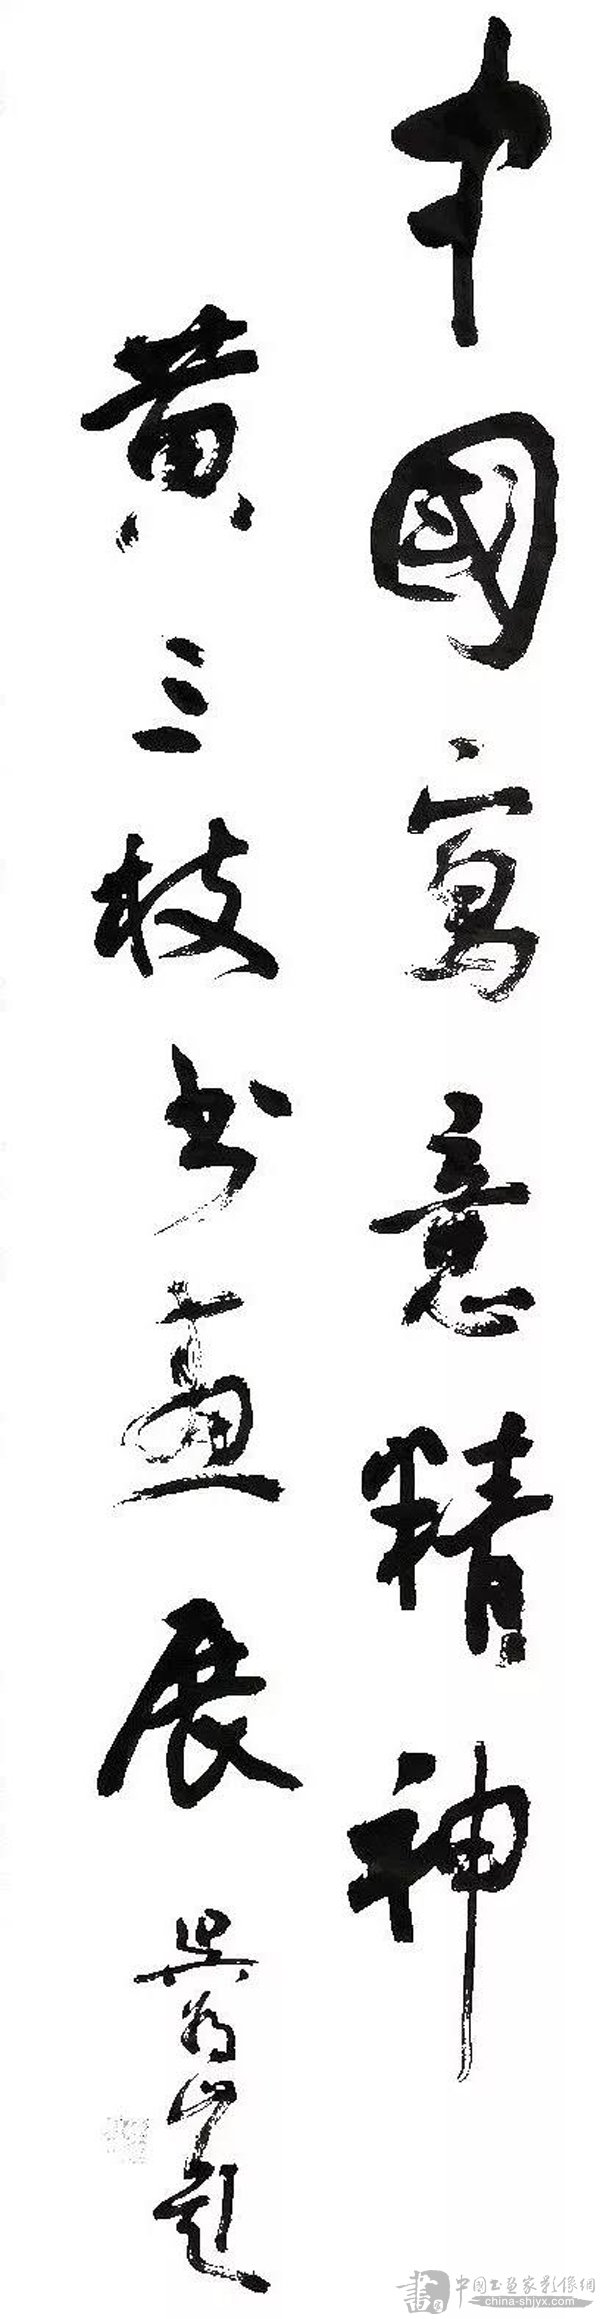 中國寫意精神
黄三枝书畫展
吴为山题
中国书画家影像網
china-shjyx.com